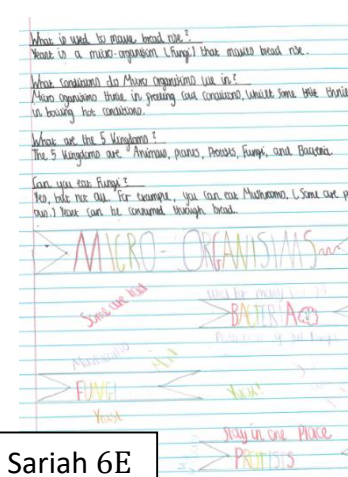 What is used to make bread rise?
Yeast is a micro-organism (Fungi) that makes bread rise.
What conditions do Micro organisims live in?
Micro organisims thrive in freezing cold conditions, whilst some take thrive
in boiling hot conditions.
What are the 5 Kingdoms?
The 5 Kingdoms are Animals, plants, Protists, Fungi, and Bacteria
Can you eat Fungi?
Yes, but not all. For example, you can eat Mushrooms. (Some are p
ous.) Yeast can be consumed through bread.
MICRO-ORGANISIMS
Some are bad
BACTERIA
Mushrooms
FUNGI
Yeast
Stay in one place
PROTISTS
Sariah 6E